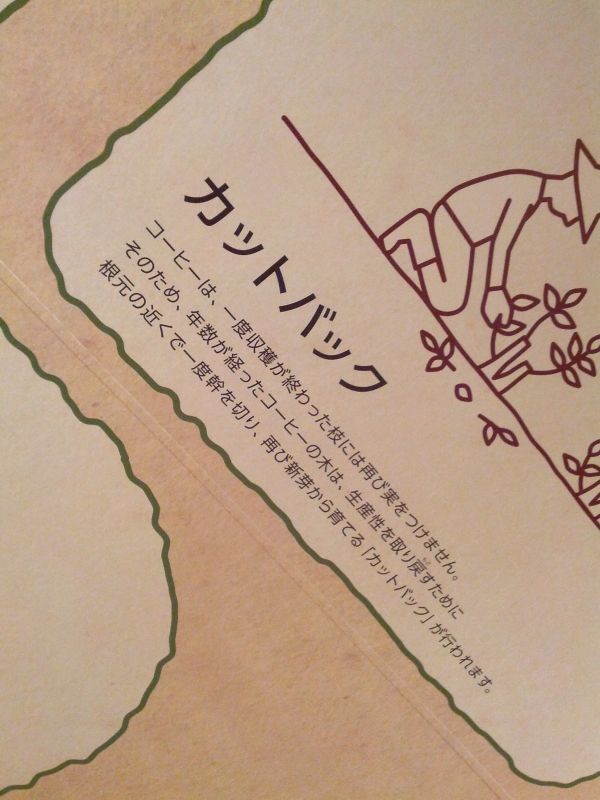 カットバック
コーヒーは、一度収穫が終わった枝には再び実をつけません。
そのため、年数が経ったコーヒーの木は、生産性を取り戻すために
根元の近くで一度幹を切り、再び新芽から育てる「カットバック」が行われます。